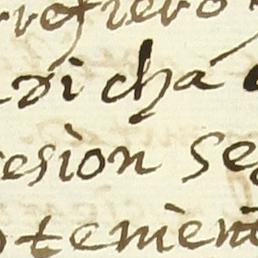 rrefiero
dicha
esion se
tenien